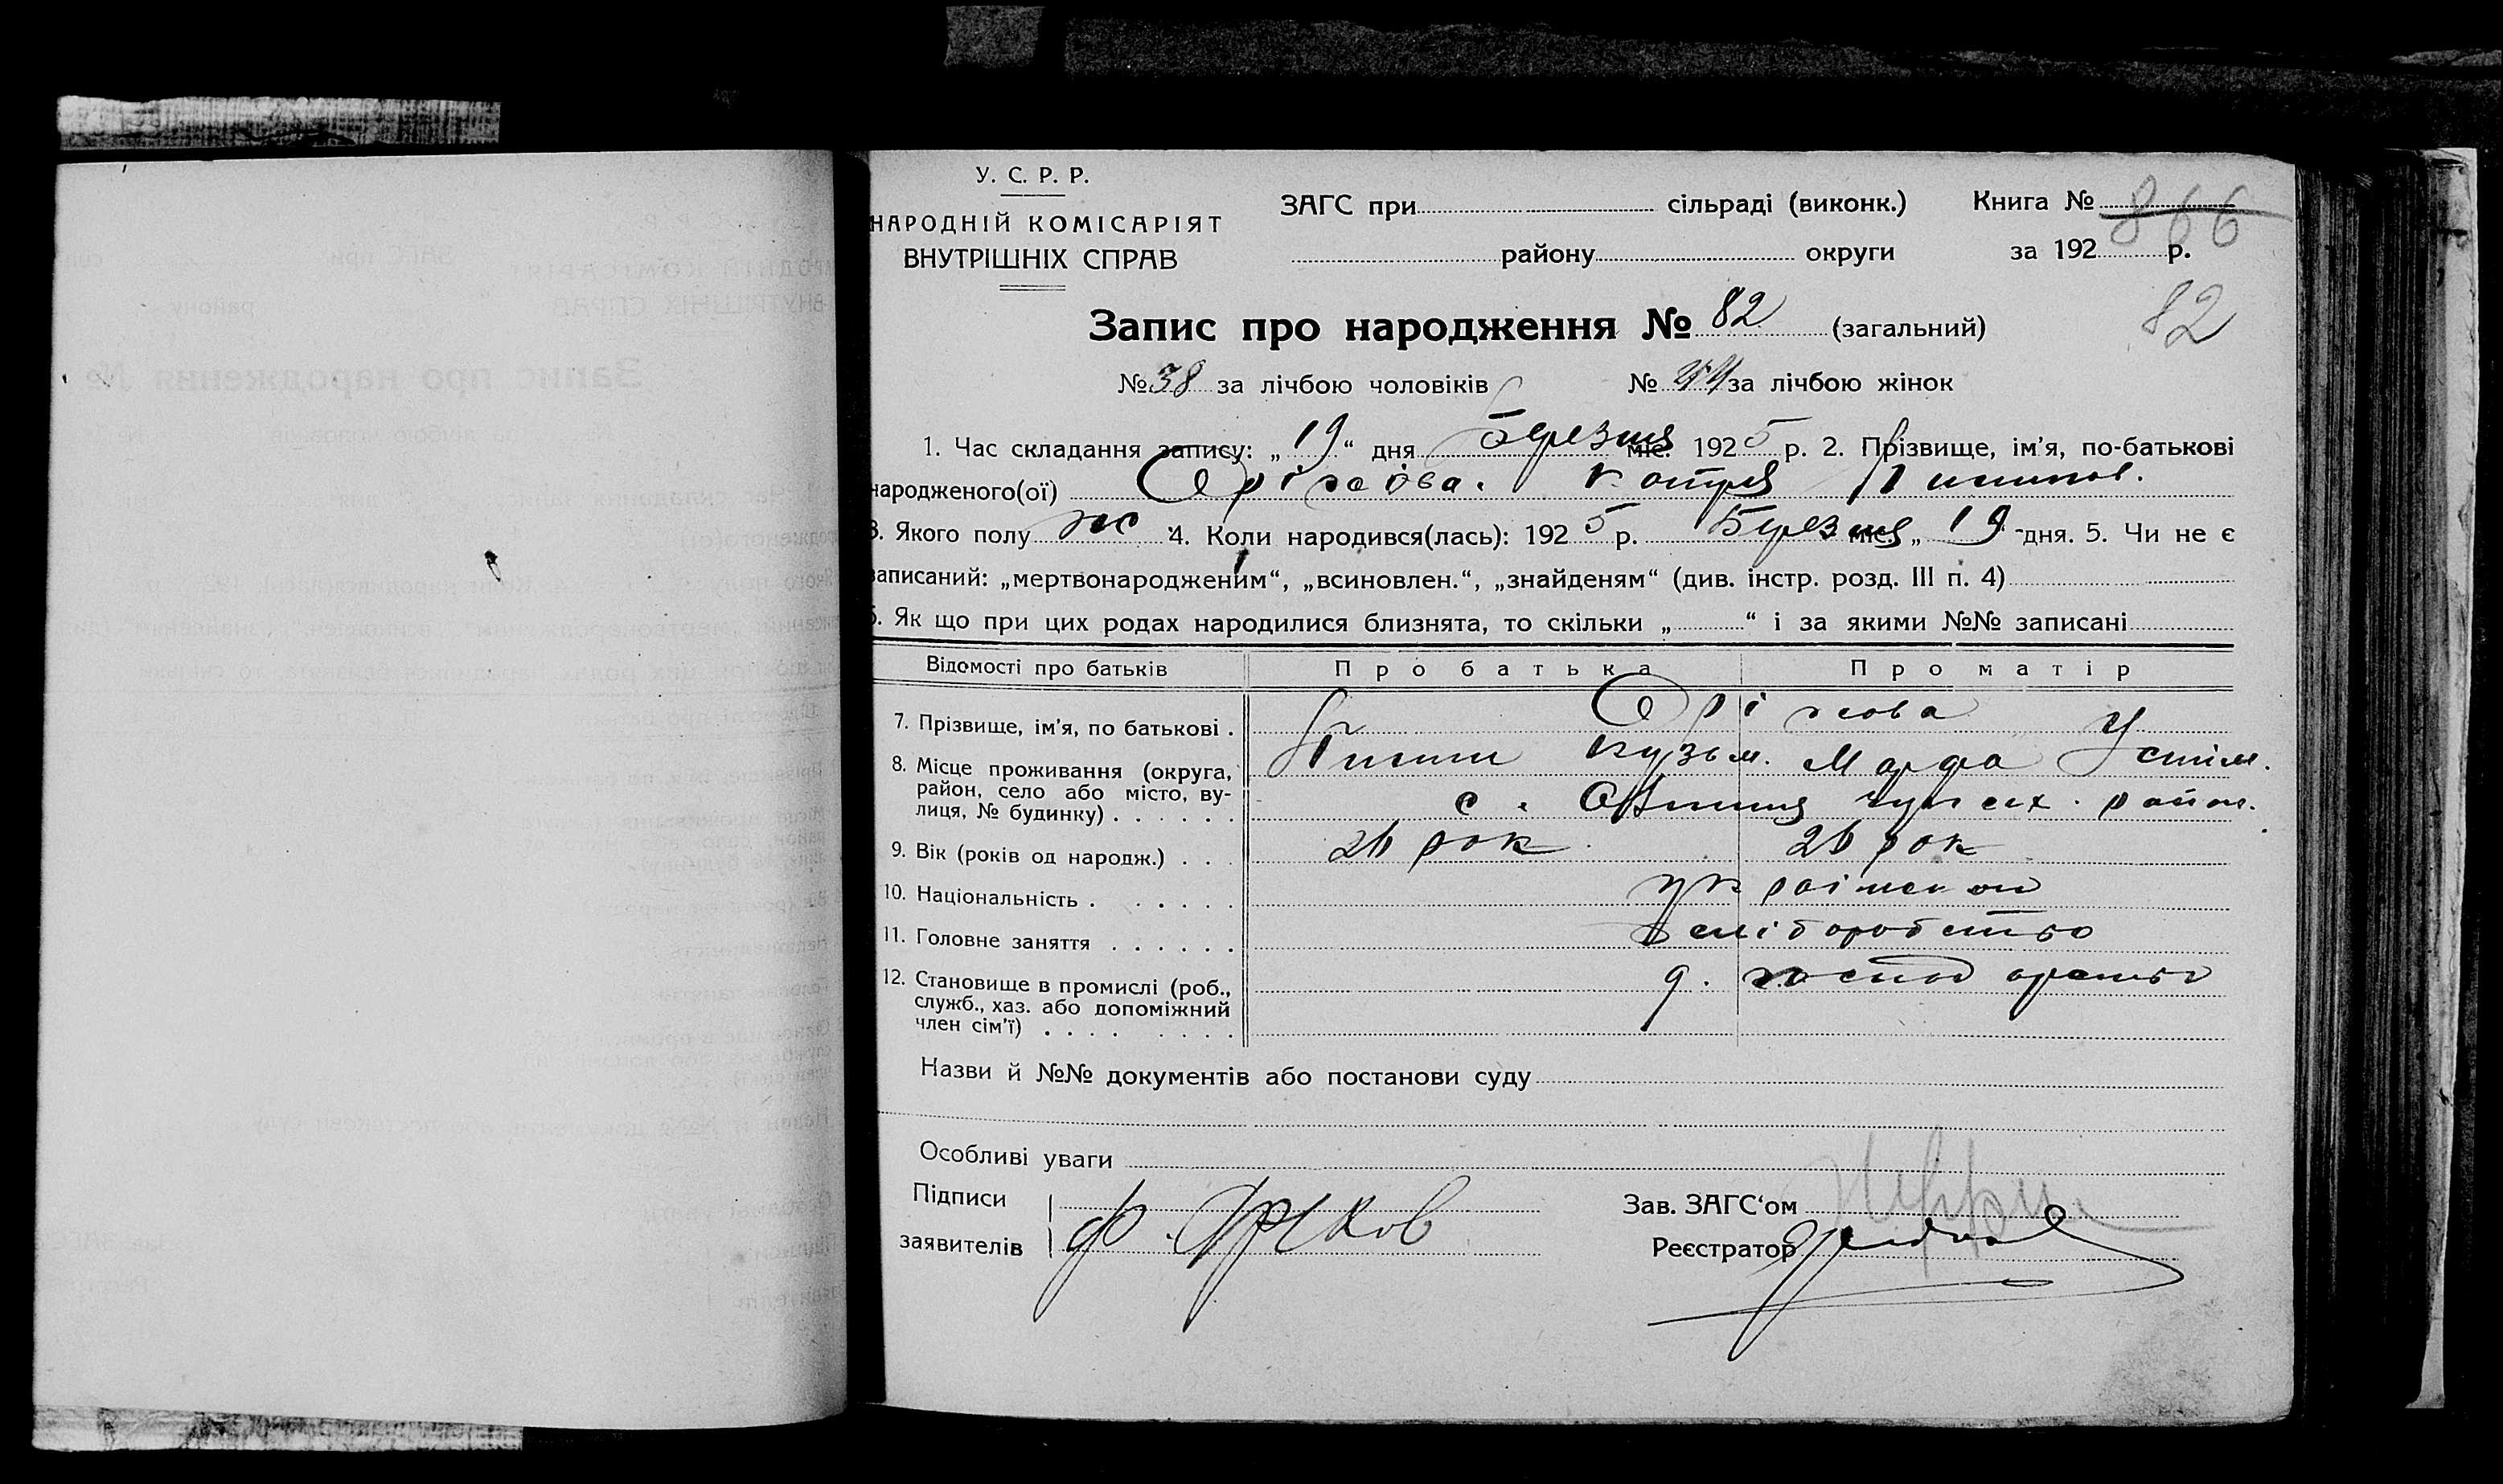 У. С. Р. Р.
НАРОДНІЙ КОМІСАРІЯТ
ВНУТРІШНІХ СПРАВ
ЗАГС при сільраді (виконк.) Книга № 866
району округи за 192 р.
Запис про народження № 82 (загальний) 82
№ 38 за лічбою чоловіків № за лічбою жінок
1. Час складання запису: „ 19 “ дня березня міс. 192 5 р. 2. Прізвище, ім'я, по-батькові
народженого(ої) Оріхова. Катря Пилипов.
3. Якого полу ж 4. Коли народився(лась): 192 5 р. Березня міс. „ 19 -дня. 5. Чи не є
записаний: „мертвонародженим“, „всиновлен.“, „знайденям“ (див. інстр. розд. III п. 4)
6. Як що при цих родах народилися близнята, то скільки „ “ і за якими №№ записані
Відомості про батьків Про батька Про матір
7. Прізвище, ім'я, по батькові . Оріхова
Пилип Кузьм. Марфа Устим.
8. Місце проживання (округа,
район, село або місто, ву-
лиця, № будинку) . . . . . . с. район.
9. Вік (років од народж.) . . . 26 рок 26 рок
10. Національність . . . . . . українськ
11. Головне заняття . . . . . . хліборобство
12. Становище в промислі (роб.,
служб., хаз. або допоміжний
член сім'ї) . . . . . . . . господарство
Назви й №№ документів або постанови суду
Особливі уваги
Підписи
заявителів
Зав. ЗАГС'ом
Реєстратор